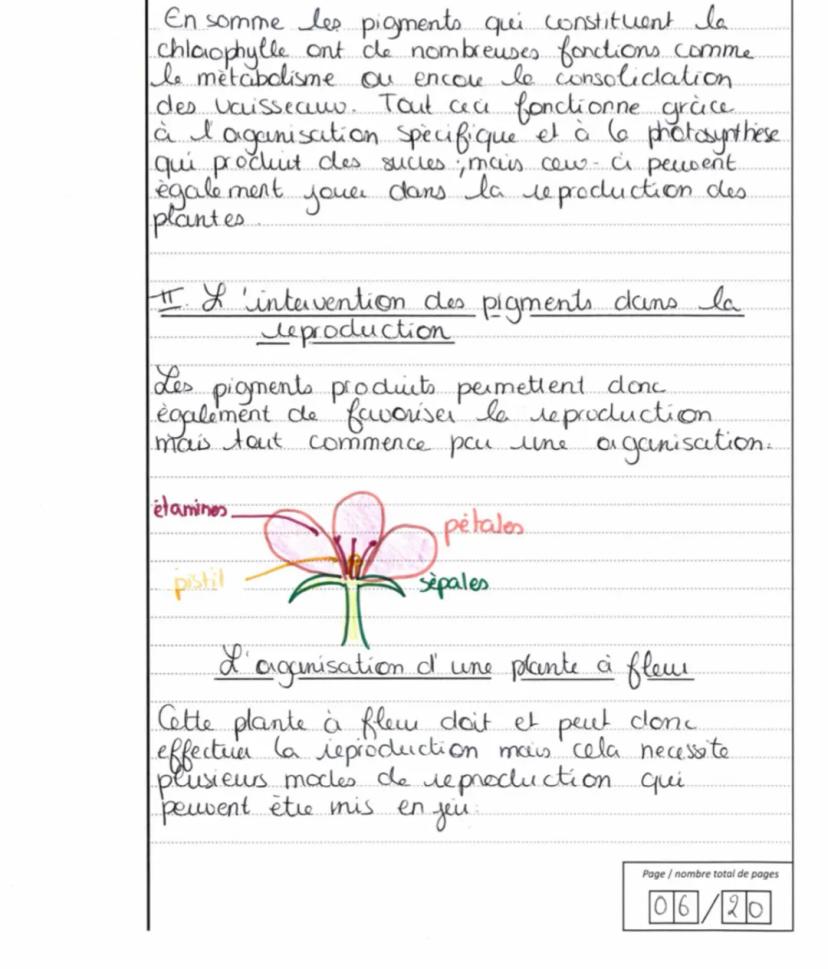 En somme les pigments qui constituent la
chlorophylle ont de nombreuses fonctions comme
le métabolisme ou encore la consolidation
des vaisseaux. Tout ceci fonctionne grâce
à l'organisation spécifique et à la photosynthèse
qui produit des sucres ; mais ceux-ci peuvent
également jouer dans la reproduction des
plantes.
II. L'intervention des pigments dans la
reproduction
Les pigments produits permettent donc
également de favoriser la reproduction
mais tout commence par une organisation.
étamines
pétales
pistil
sépales
L'organisation d'une plante à fleur
Cette plante à fleur doit et peut donc
effectuer la reproduction mais cela necessite
plusieurs modes de reproduction qui
peuvent être mis en jeu.
Page / nombre total de pages
06/20